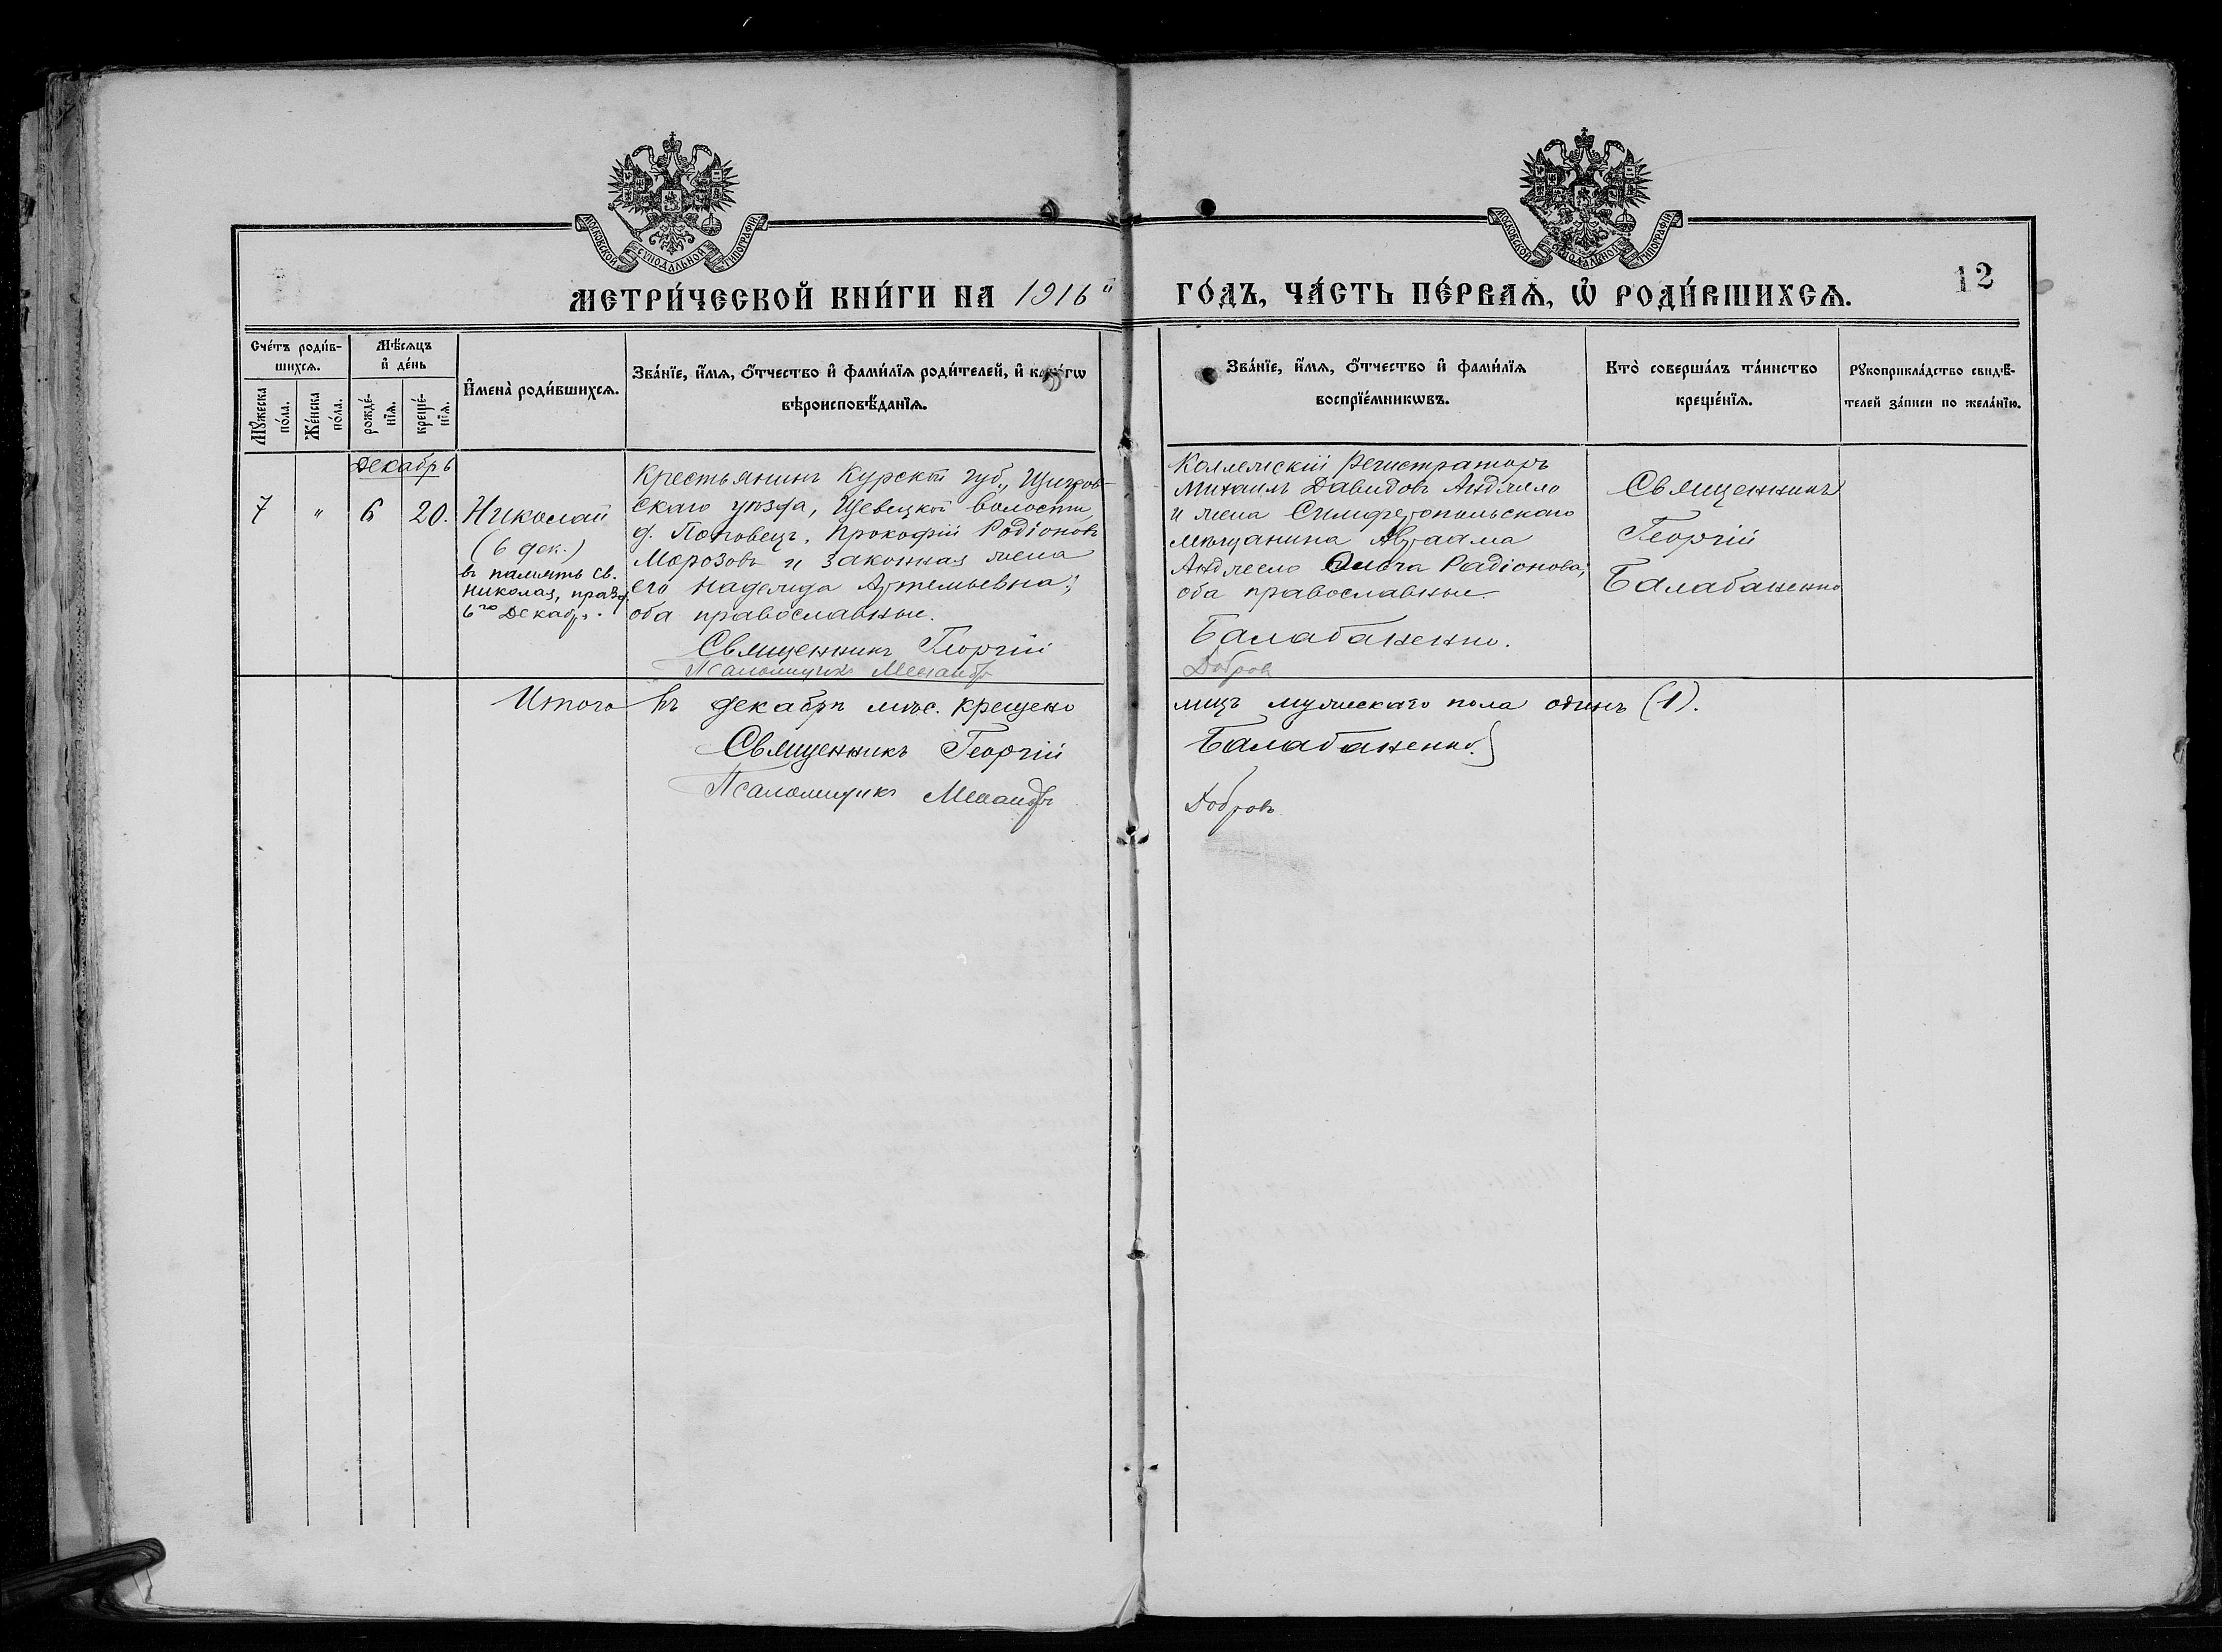 МОСКОВСКОЙ СѴНОДАЛЬНОЙ ТИПОГРАФІИ
МОСКОВСКОЙ СѴНОДАЛЬНОЙ ТИПОГРАФІИ
МЕТРИ́ЧЕСКОЙ КНИ́ГИ НА 1916й ГО́ДЪ, ЧА́СТЬ ПЕ́РВАѦ, Ѡ҆ РОДИ́ВШИХСѦ.
12
Сче́тъ роди́в-
шихсѧ.
Мѹжеска по́ла.
Же́нска по́ла.
Мѣ́сѧцъ
и҆ де́нь
рожде́-
нїѧ.
креще́-
нїѧ.
И҆мена̀ роди́вшихсѧ.
Зва́нїе, и҆́мѧ, ѻ҆́тчество и҆ фами́лїѧ роди́телей, и҆ како́гѡ
вѣроисповѣ́данїѧ.
Зва́нїе, и҆́мѧ, ѻ҆́тчество и҆ фами́лїѧ
воспрїе́мникѡвъ.
Кто̀ соверша́лъ та́инство
креще́нїѧ.
Рꙋкоприкла́дство свидѣ́-
телей за́писи по жела́нїю.
Декабрь
7 " 6 20.
Николай
(6 дек.)
въ память св.
Николая, празд.
6го Декабря.
Крестьянинъ Курской губ., Щигров-
скаго уѣзда, волости,
д. Поповецъ, Прокофій Родіоновъ
Морозовъ и законная жена
его Надежда Артемьевна;
оба православные.
Священникъ Георгій
Псаломщикъ Менандръ
Коллежскій Регистраторъ
Михаилъ Давидовъ Анджело
и жена Симферопольскаго
мѣщанина Авраама
Анджело Ольга Радіонова;
оба православные.
Балабаненко.
Добровъ
Священникъ
Георгій
Балабаненко
Итого въ декабрѣ мѣс. крещено лицъ мужескаго пола одинъ (1).
Священникъ Георгій Балабаненко.
Псаломщикъ Менандръ Добровъ